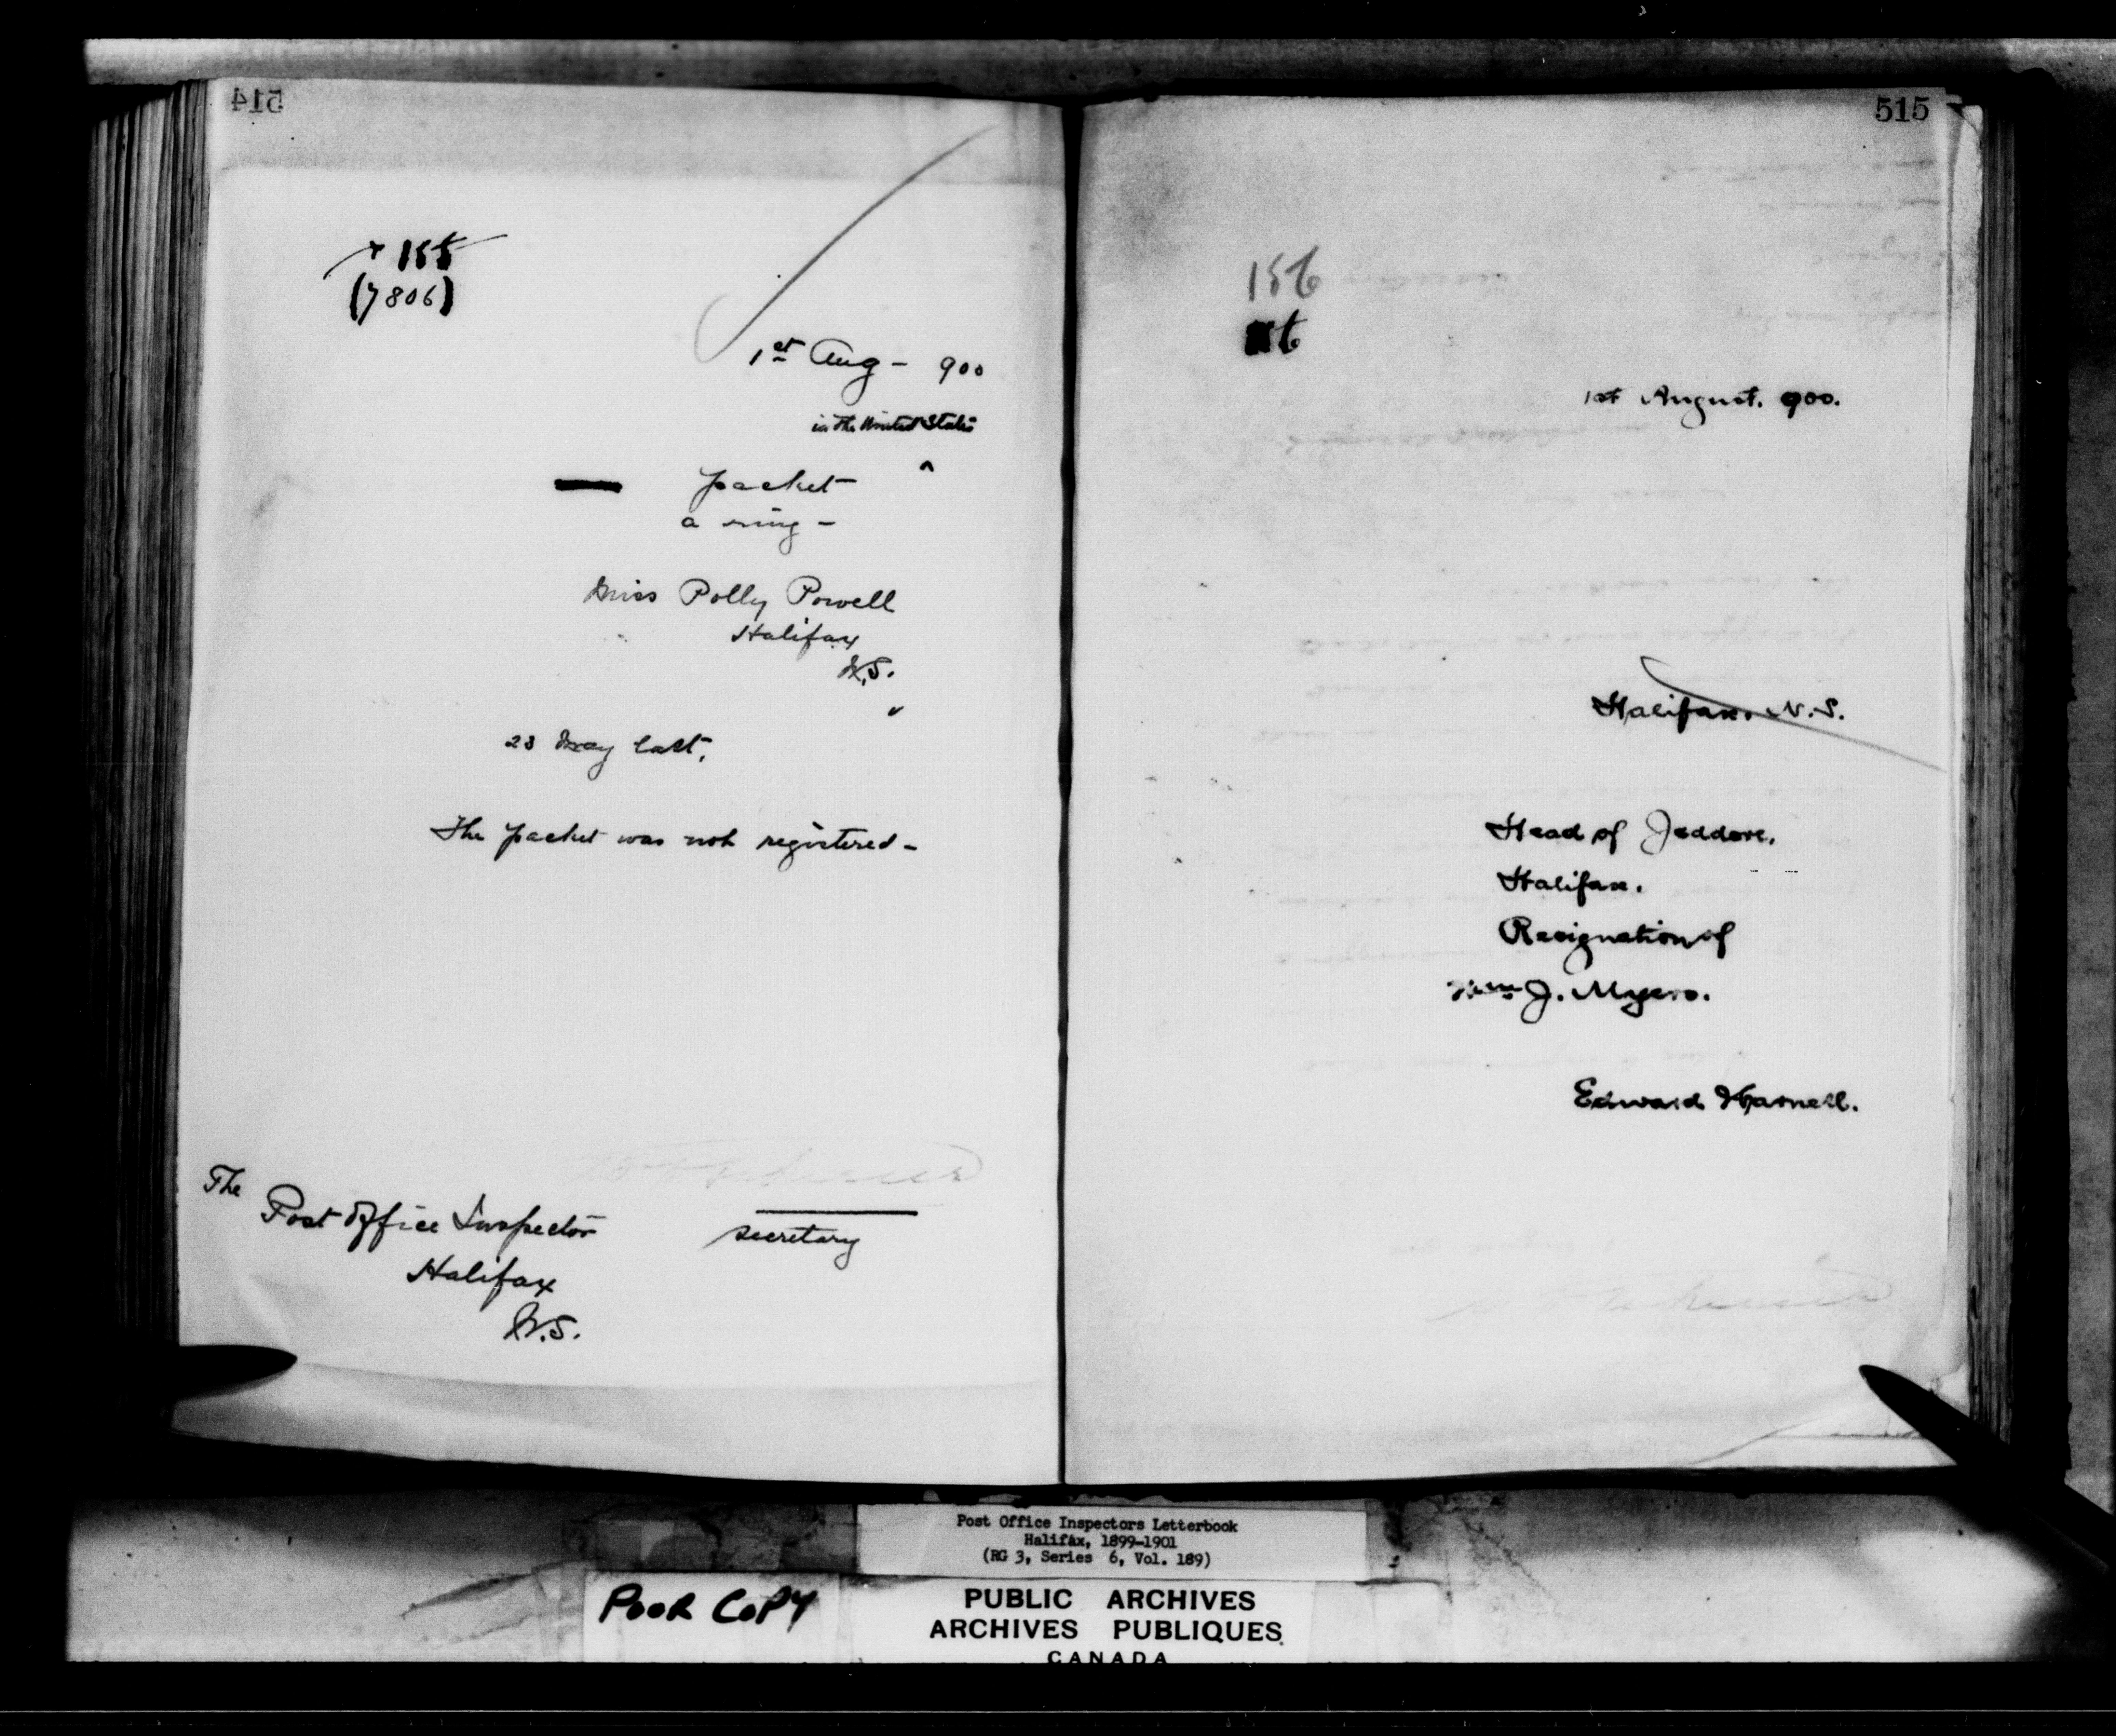 514
155
(7806)
1st Aug - 900
in the United States
^
packet
a ring -
Miss Polly Powell
Halifax
N.S.
23 May last,
The packet was not registered -
secretary
The
Post Office Inspector
Halifax
N.S.
515
156
1st August. 900.
Halifax. N.S.
Head of Jeddore.
Halifax.
Resignation of
Wm J. Myers.
Edward
Post Office Inspectors Letterbook
Halifax, 1899-1901
(RG 3, Series 6, Vol. 189)
POOR COPY
PUBLIC ARCHIVES
ARCHIVES PUBLIQUES
CANADA